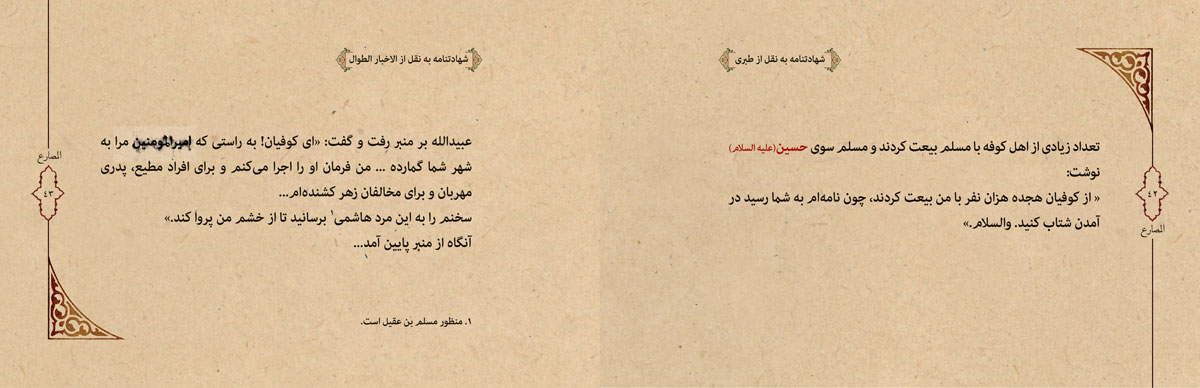 شهادتنامه به نقل از طبری
تعداد زیادی از اهل کوفه با مسلم بیعت کردند و مسلم سوی حسین(علیه السلام)
نوشت:
« از کوفیان هجده هزان نفر با من بیعت کردند، چون نامه‌ام به شما رسید در
آمدن شتاب کنید. والسلام.»
٤٢
المصارع
شهادتنامه به نقل از الاخبار الطوال
عبیدالله بر منبر رفت و گفت: «ای کوفیان! به راستی که امیرالمومنین مرا به
شهر شما گمارده ... من فرمان او را اجرا می‌کنم و برای افراد مطیع، پدری
مهربان و برای مخالفان زهر کشنده‌ام...
سخنم را به این مرد هاشمی۱ برسانید تا از خشم من پروا کند.»
آنگاه از منبر پایین آمد...
۱. منظور مسلم بن عقیل است.
المصارع
٤٣